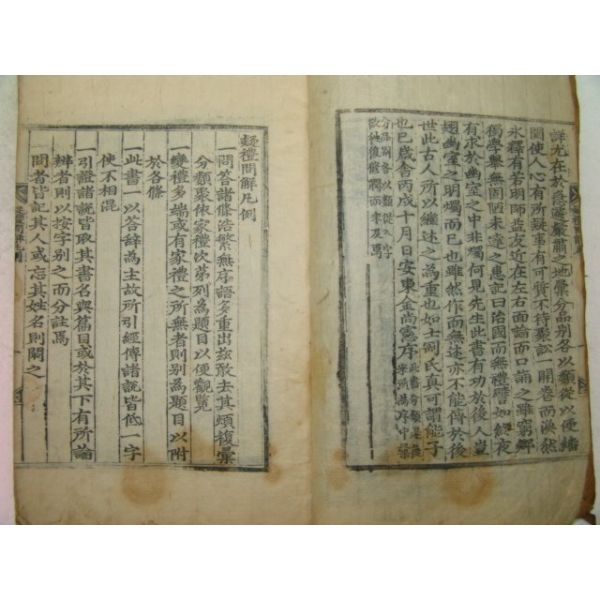 詳尤在於急遽嚴肅之地彙分品別各以類從以便繙
閱使人心有所疑事有可質不待聚訟一開卷而渙然
氷釋有若明師益友近在左右面諭而口誦之雖窮鄕
獨學擧無固陋未達之患記曰治國而無禮譬如終夜
有求於幽室之中非燭何見先生此書有功於後人豈
翅幽室之明燭而已也雖然作而無述亦不能傳於後
世此古人所以繼述之爲重也如士剛氏眞可謂能子
也已歲舍丙戌十月日安東金尙憲序
疑禮問解凡例
一問答諸條浩繁無序語多重出玆敢去其煩複彙
分類聚依家禮次第列爲題目以便觀覽
一變禮多端或有家禮之所無者則別爲題目以附
於各條
一此書一以答辭爲主故所引經傳諸說皆低一字
使不相混
一引證諸說皆取其書名與篇目或於其下有所論
辨者則以按字別之而分註焉
問者皆記其人或忘其姓名則闕之